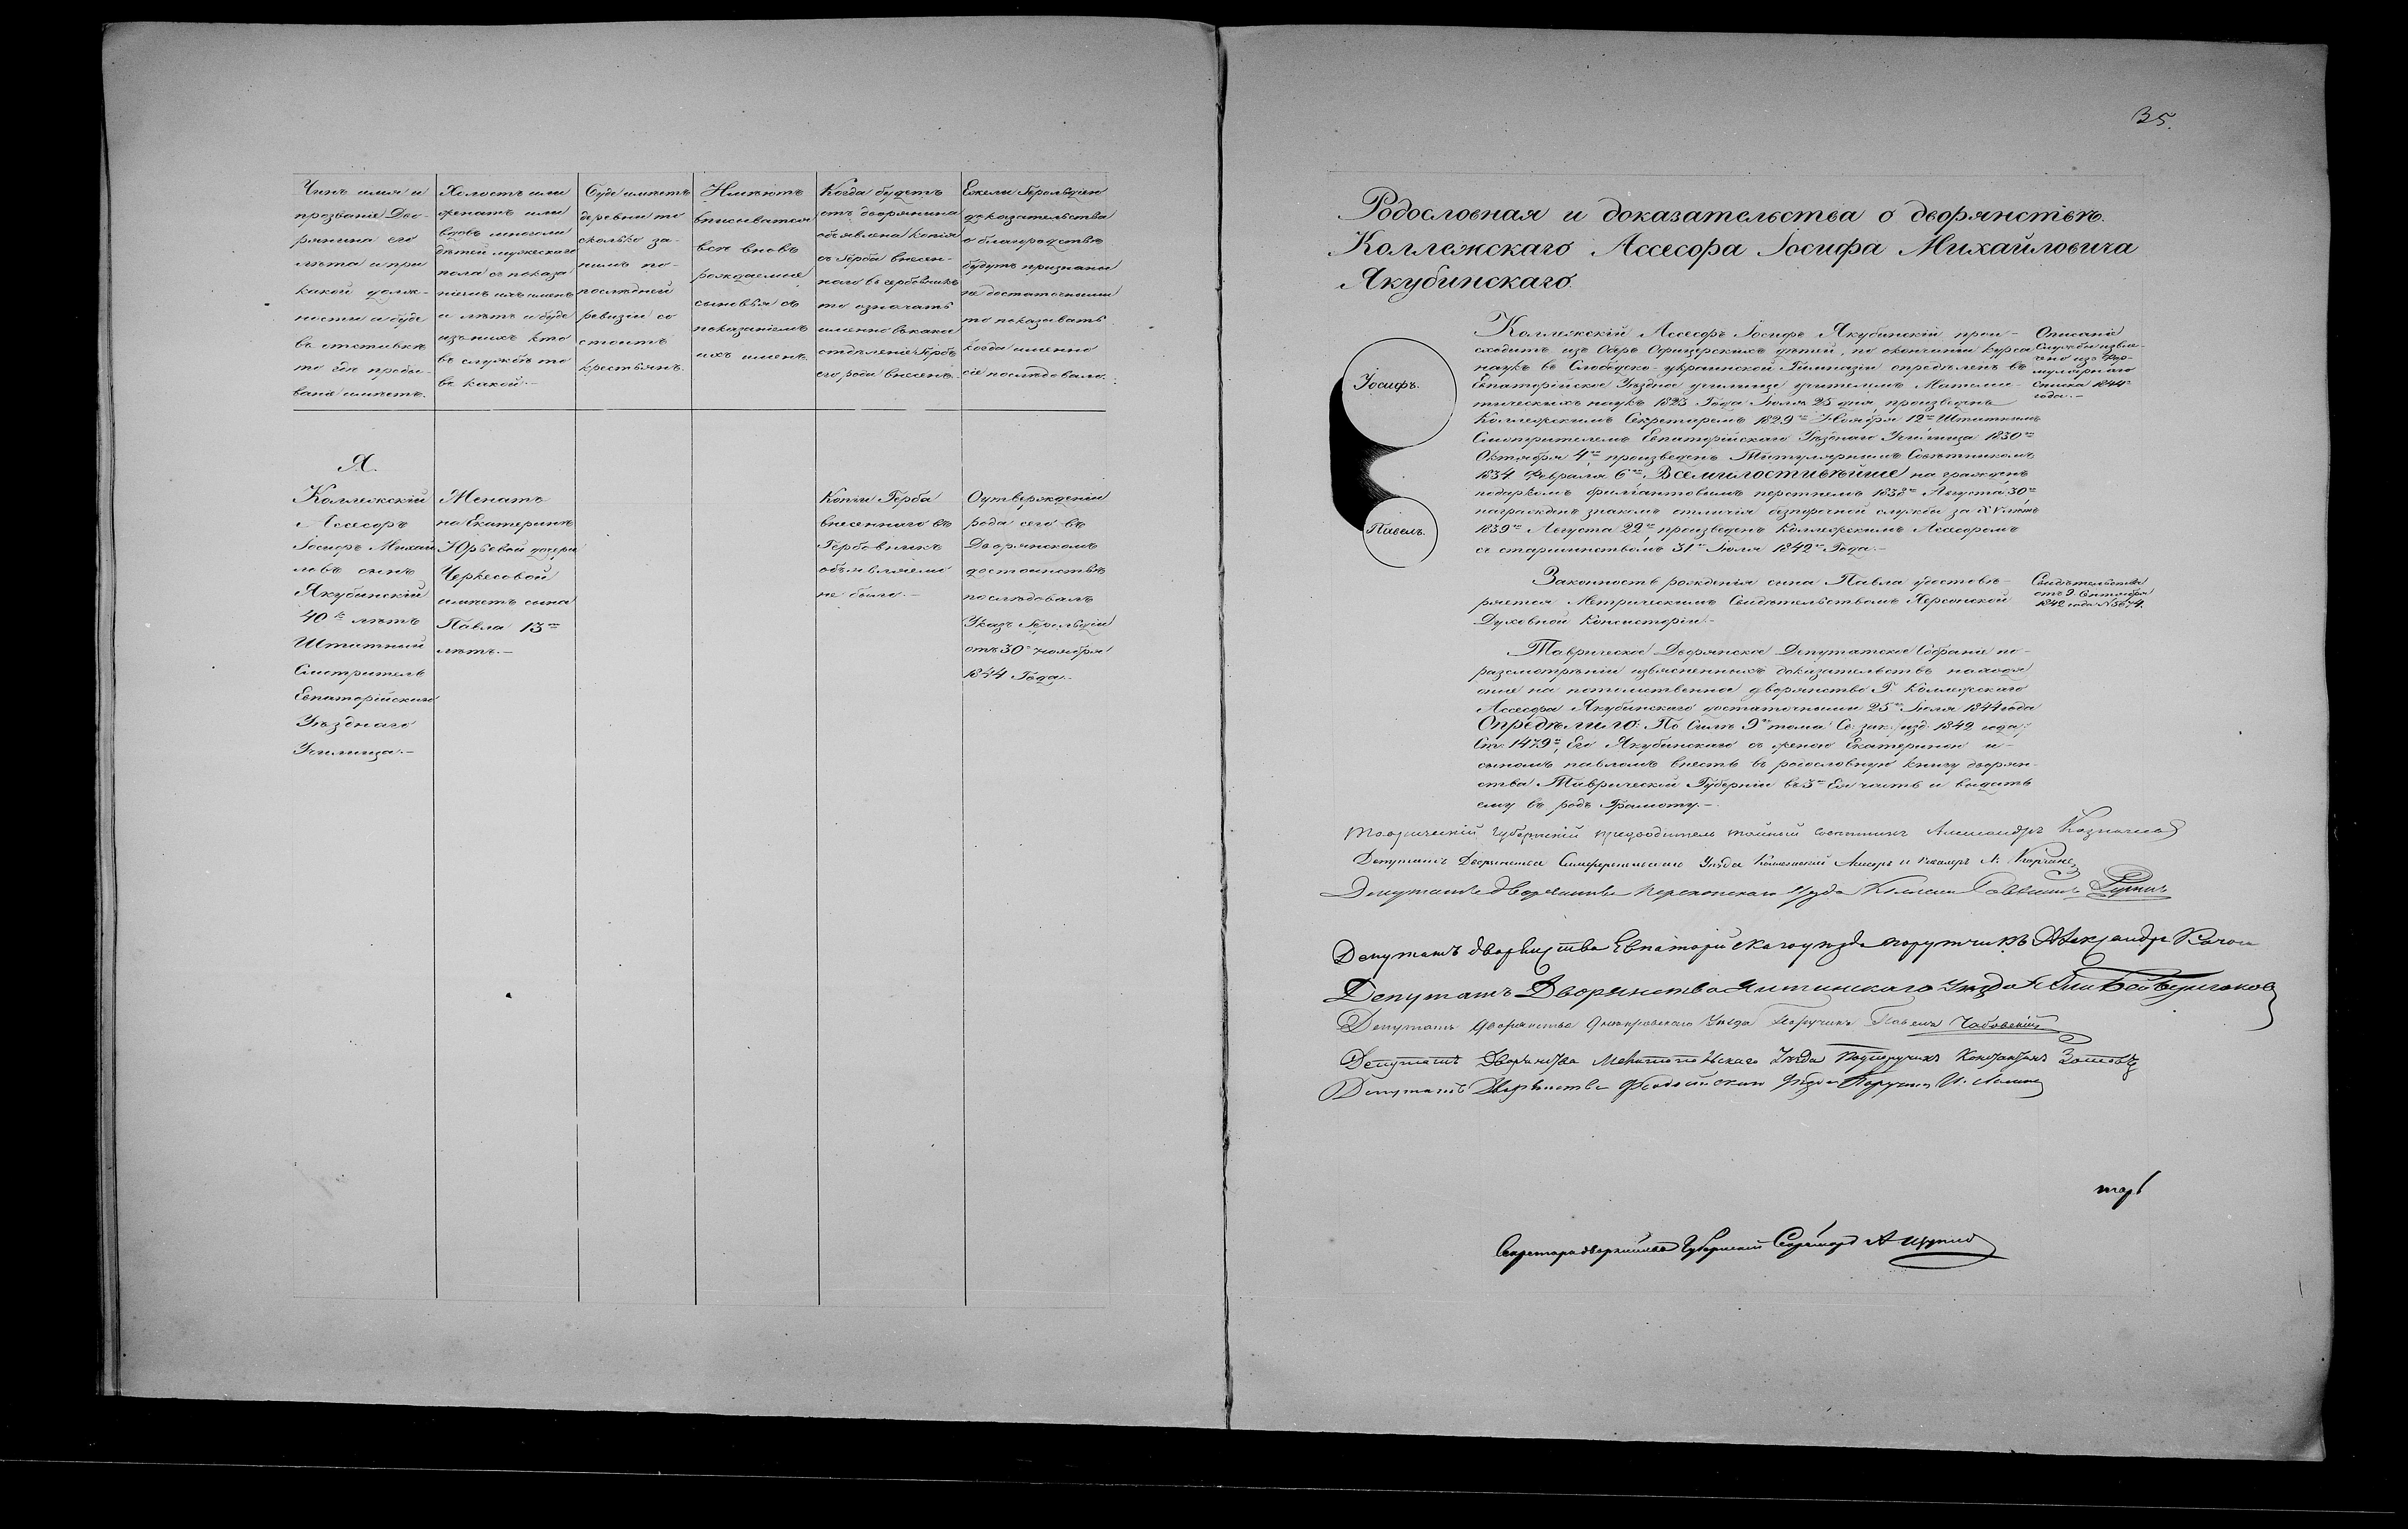 Чинъ имя и
прозваніе Дво-
рянина его
лѣта и при
какой долж-
ности и буде
въ отставкѣ
то гдѣ пребы-
ваніе имѣетъ.
Холостъ или
женатъ или
вдовъ многоли
дѣтей мужескаго
пола съ показа
ніемъ ихъ именъ
и лѣтъ и буде
изъ нихъ кто
въ службѣ то
въ какой.—
Буде имѣетъ
деревни то
сколько за-
нимъ по-
послѣдней
ревизіи со
стоитъ
крестьянъ.
Имѣютъ
вписыватся
всѣ вновь
рождаемые
сыновья съ
показаніемъ
ихъ именъ.
Когда будетъ
отъ дворянина
объявлена копія
съ Герба внесен-
наго въ гербовникъ
то означать
именно въ какое
отдѣленіе Гербъ
его рода внесенъ.
Ежели Герольдіею
доказательства
о благородствѣ
будутъ признаны
не достаточными
то показывать
когда именно
сіе послѣдовало.
Я.
Коллежскій
Ассесоръ
Іосифъ Михай
ловъ сынъ
Якубинскій
40 лѣтъ
Штатный
Смотритель
Евпаторійскаго
Уѣзднаго
Училища.—
Женатъ
на Екатеринѣ
Юрьевой дочери
Черкесовой
имѣетъ сына
Павла 13
лѣтъ.—
Копіи Герба
внесеннаго въ
Гербовникъ
объявляемо
не было.—
О утвержденіи
рода сего въ
Дворянскомъ
достоинствѣ
послѣдовалъ
Указъ Герольдіи
отъ 30 ноября
1844 Года.—
35.
Родословная и доказательства о дворянствѣ.
Коллежскаго Ассесора Іосифа Михайловича
Якубинскаго.
Іосифъ.
Павелъ.
Коллежскій Ассесоръ Іосифъ Якубинскій прои-
сходитъ изъ Оберъ Офицерскихъ дѣтей, по окончаніи курса
наукъ въ Слободско-украинской Гимназіи опредѣленъ въ
Евпаторійское Уѣздное училище учителемъ Матема-
тическихъ наукъ 1823 Года Іюля 25 дня, произведенъ
Коллежскимъ Секретаремъ 1829 Ноября 12 Штатнымъ
Смотрителемъ Евпаторійскаго Уѣзднаго Училища 1830
Октября 4, произведенъ Титулярнымъ Совѣтникомъ
1834 Февраля 6, Всемилостивѣйше награжденъ
подаркомъ брилiантовымъ перстнемъ 1838 Августа 30
награжденъ знакомъ отличія безпорочной службы за XV лѣтъ
1839 Августа 22, произведенъ Коллежскимъ Ассесоромъ
съ старшинствомъ 31 Іюля 1842 Года.—
Описаніе
Службы извле-
чено изъ Фор-
мулярнаго
Списка 1844
года.—
Законность рожденія сына Павла удостовѣ-
ряется Метрическимъ Свидѣтельствомъ Херсонской
Духовной Консисторіи.—
Свидѣтельство
отъ 9 Сентября
1842 года № 5674.
Таврическое Дворянское Депутатское Собраніе по-
разсмотрѣніи изъясненныхъ доказательствъ находя
оные на потомственное дворянство Г. Коллежскаго
Ассесора Якубинскаго достаточными 25 Іюля 1844 года
Опредѣлило: По Силѣ 9 тома Св: зак: изд: 1842 года:
Ст: 1479, Его Якубинскаго съ женою Екатериною и-
сыномъ павломъ внесть въ родословную книгу дворян-
ства Таврической Губерніи въ 3 Ея часть и выдать
ему въ родъ Грамоту.—
Таврическій Губернскій предводитель тайный совѣтникъ Александръ Казначеевъ
Депутатъ Дворянства Симферопольскаго Уѣзда Коллежскій Ассесоръ и Кавалеръ
Депутатъ дворянства Перекопскаго Уѣзда
Депутатъ дворянства Евпаторійскаго уѣзда поручикъ Александръ
Депутатъ Дворянства Ялтинскаго Уѣзда
Депутатъ дворянства Днѣпровскаго Уѣзда Поручикъ Павелъ
Депутатъ Дворянства Мелитопольскаго Уѣзда Подпоручикъ Константинъ
Депутатъ Дворянства Феодосійскаго Уѣзда Поручикъ
Секретарь дворянства Губернскій Секретарь